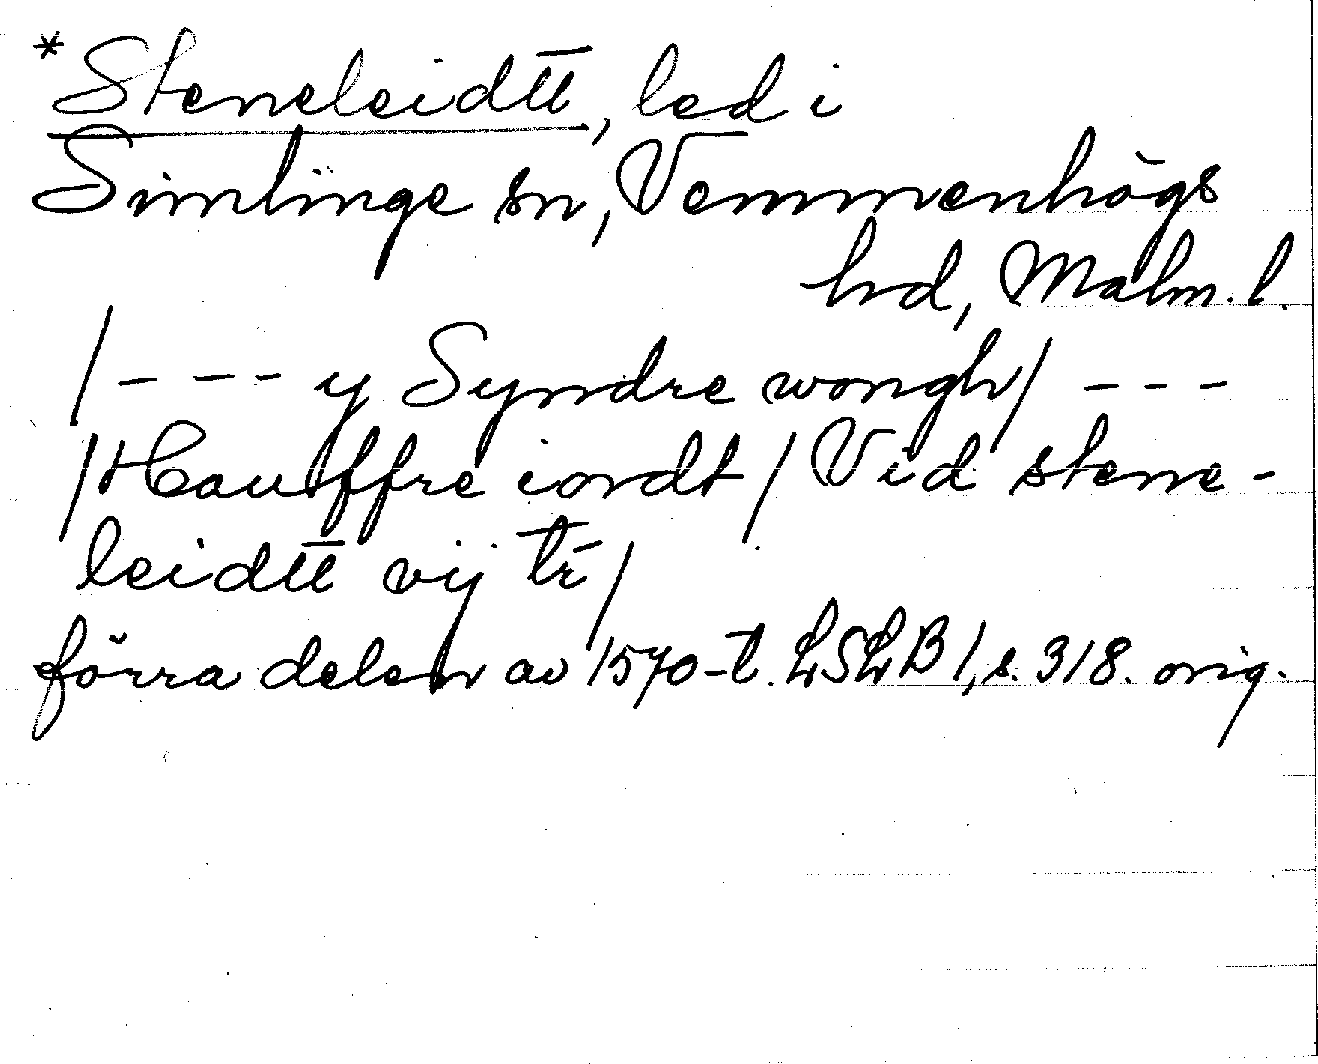 *Steneleidtt̅, led i
Simlinge sn, Vemmenhögs
hd, Malm. l.
/- - - y Syndre wongh/ - - -
/Hauffre iordt/ Vid stene-
leidtt̅ vij tr̅/
förra delen av 1570-t. LSLB 1, s. 318. orig.